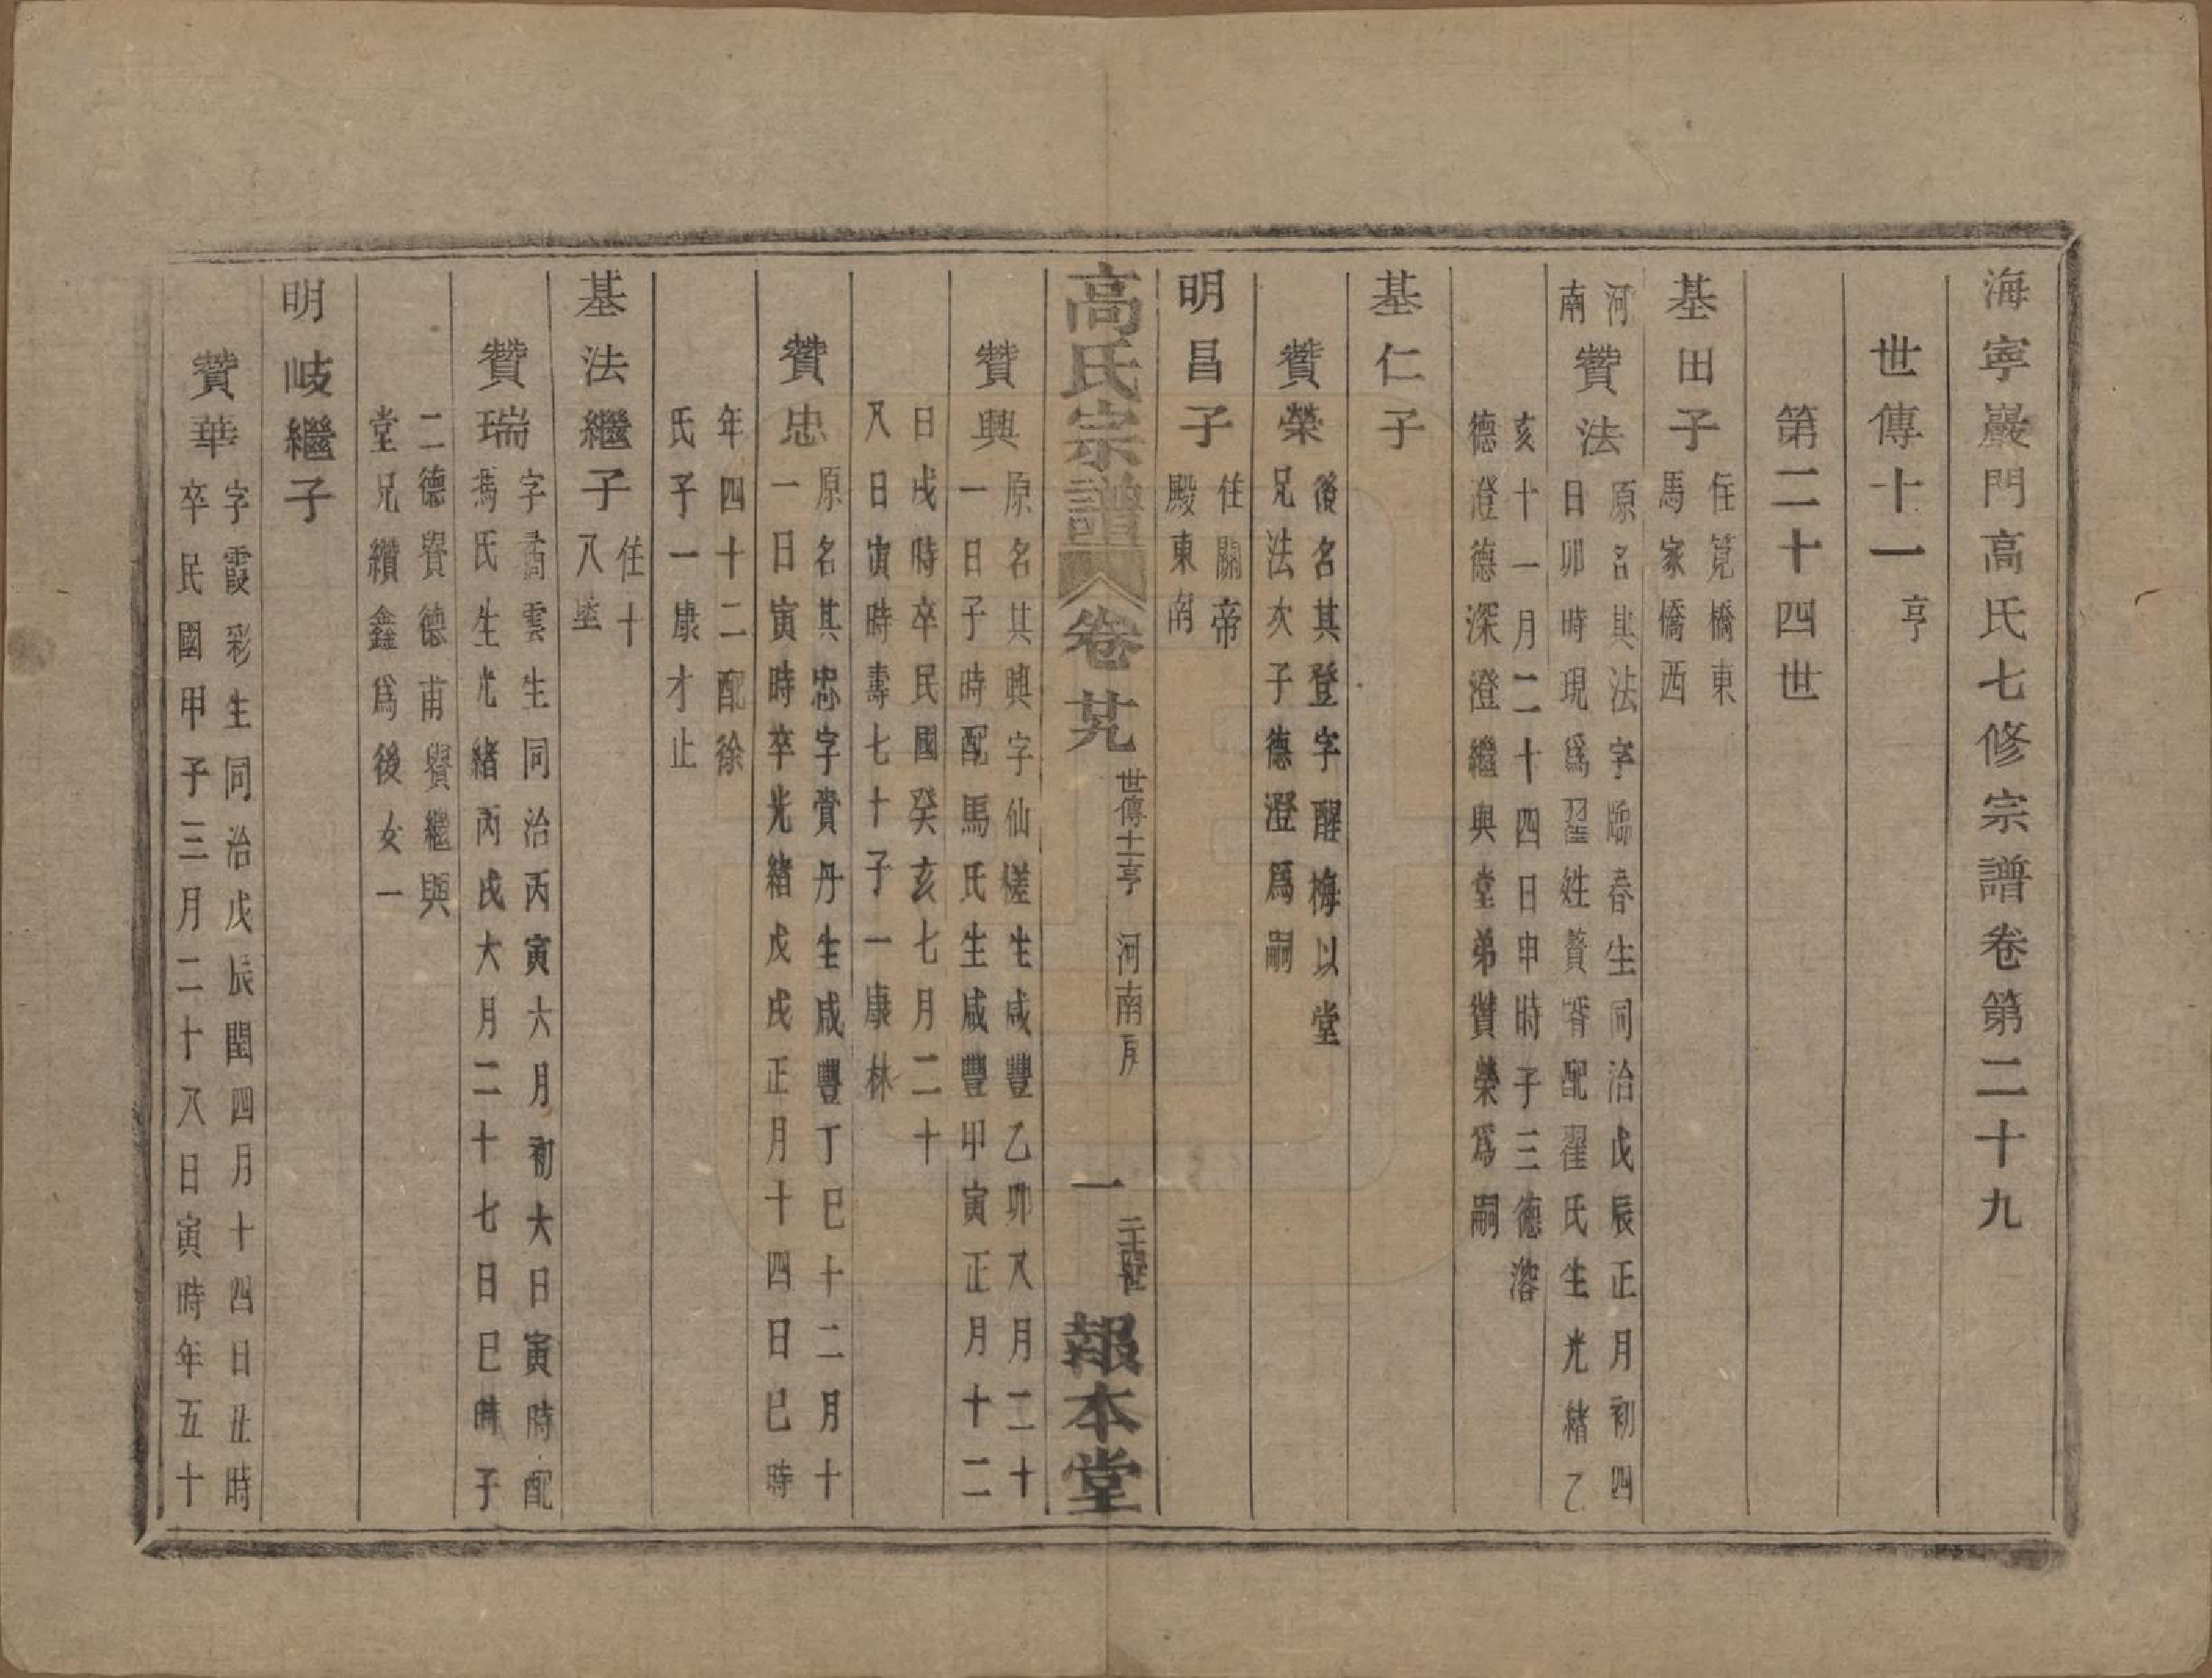 海寧巖門高氏七修宗譜卷第二十九
世傳十一亨
第二十四世
基田子
住筧橋東
馬家橋西
河
南
贊法
原名其法字臨春生同治戊辰正月初四
日卯時現爲翟姓贅壻配翟氏生光緒乙
亥十一月二十四日申時子三德溶
德澄德深澄繼與堂弟贊榮爲嗣
基仁子
贊榮
後名其登字醒梅以堂
兄法次子德澄爲嗣
明昌子
住關帝
殿東南
高氏宗譜
卷廿九
世傳十一亨 河南房
一
二十四世
報本堂
贊興
原名其興字仙槎生咸豐乙卯又月二十
一日子時配馬氏生咸豐甲寅正月十二
日戌時卒民國癸亥七月二十
八日寅時壽七十子一康林
贊忠
原名其忠字賞丹生咸豐丁巳十二月十
一日寅時卒光緒戊戌正月十四日巳時
年四十二配徐
氏子一康才止
基法繼子
住十
八垄
贊瑞
字喬雲生同治丙寅六月初六日寅時配
馮氏生光緒丙戌六月二十七日巳時子
二德賢德甫賢繼與
堂兄纘鑫爲後女一
明岐繼子
贊華
字霞彩生同治戊辰閏四月十四日丑時
卒民國甲子三月二十八日寅時年五十